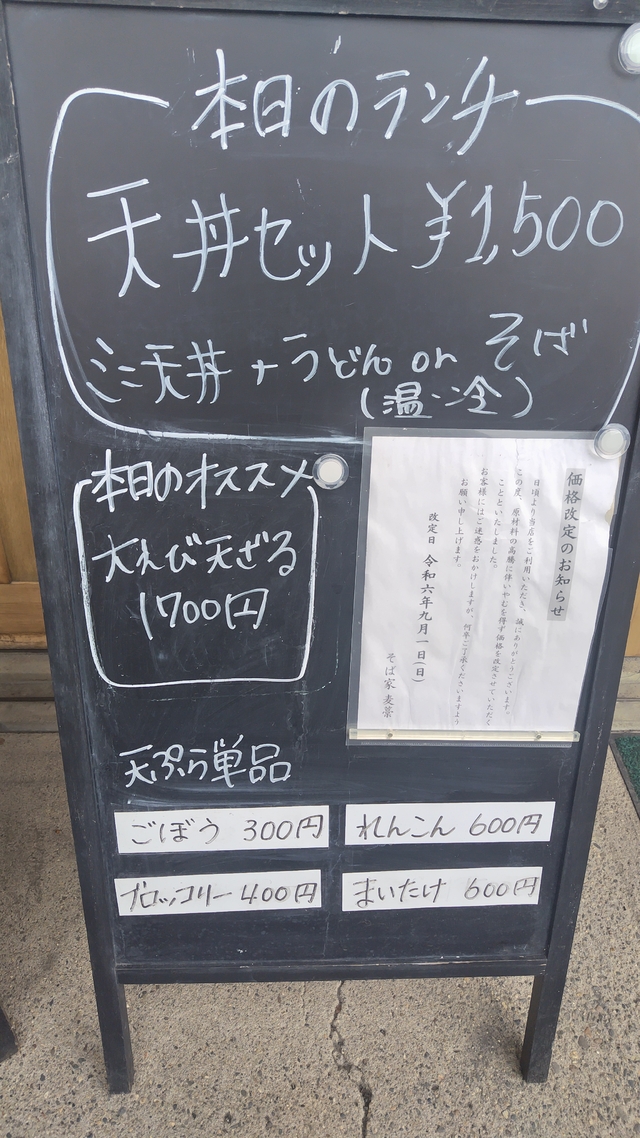 本日のランチ
天丼セット ¥1,500
ミニ天丼 + うどん or そば
(温・冷)
本日のオススメ
大えび天ざる
1700円
価格改定のお知らせ
日頃より当店をご利用いただき、誠にありがとうございます。
この度、原材料の高騰に伴いやむを得ず価格を改定させていただく
ことといたしました。
お客様にはご迷惑をおかけしますが、何卒ご了承くださいますよう
お願い申し上げます。
改定日 令和六年九月一日(日)
そば家 麦藁
天ぷら単品
ごぼう 300円
れんこん 600円
ブロッコリー 400円
まいたけ 600円